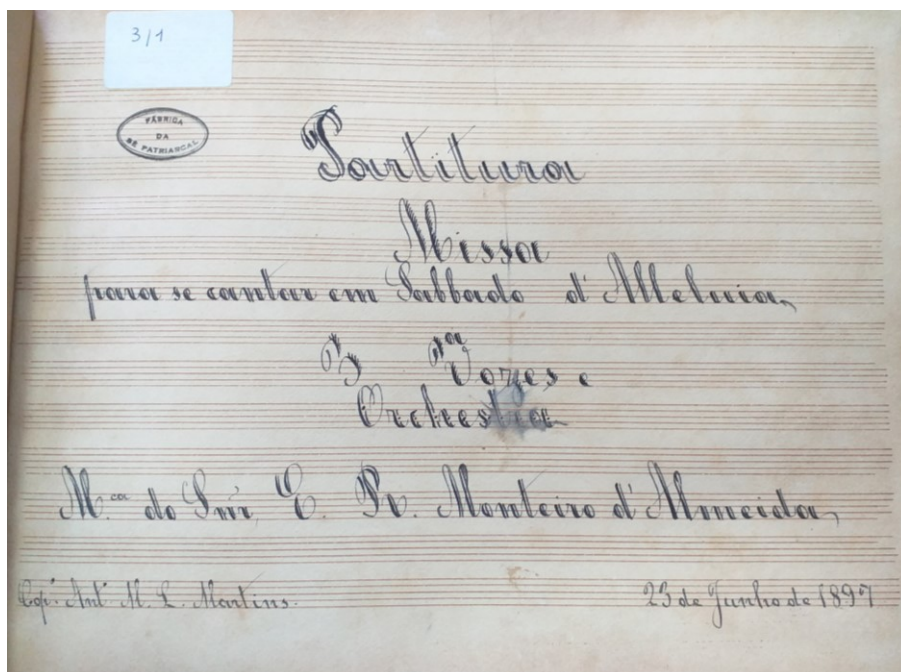 3/1
FÁBRICA
DA
SÉ PATRIARCAL
Partitura
Missa
para se cantar em Sabbado d'Alleluia
3 Vozes e
Orchestra
M.ca do Snr. E. R. Monteiro d'Almeida
Cop. Ant. M. L. Martins.
23 de Junho de 1897